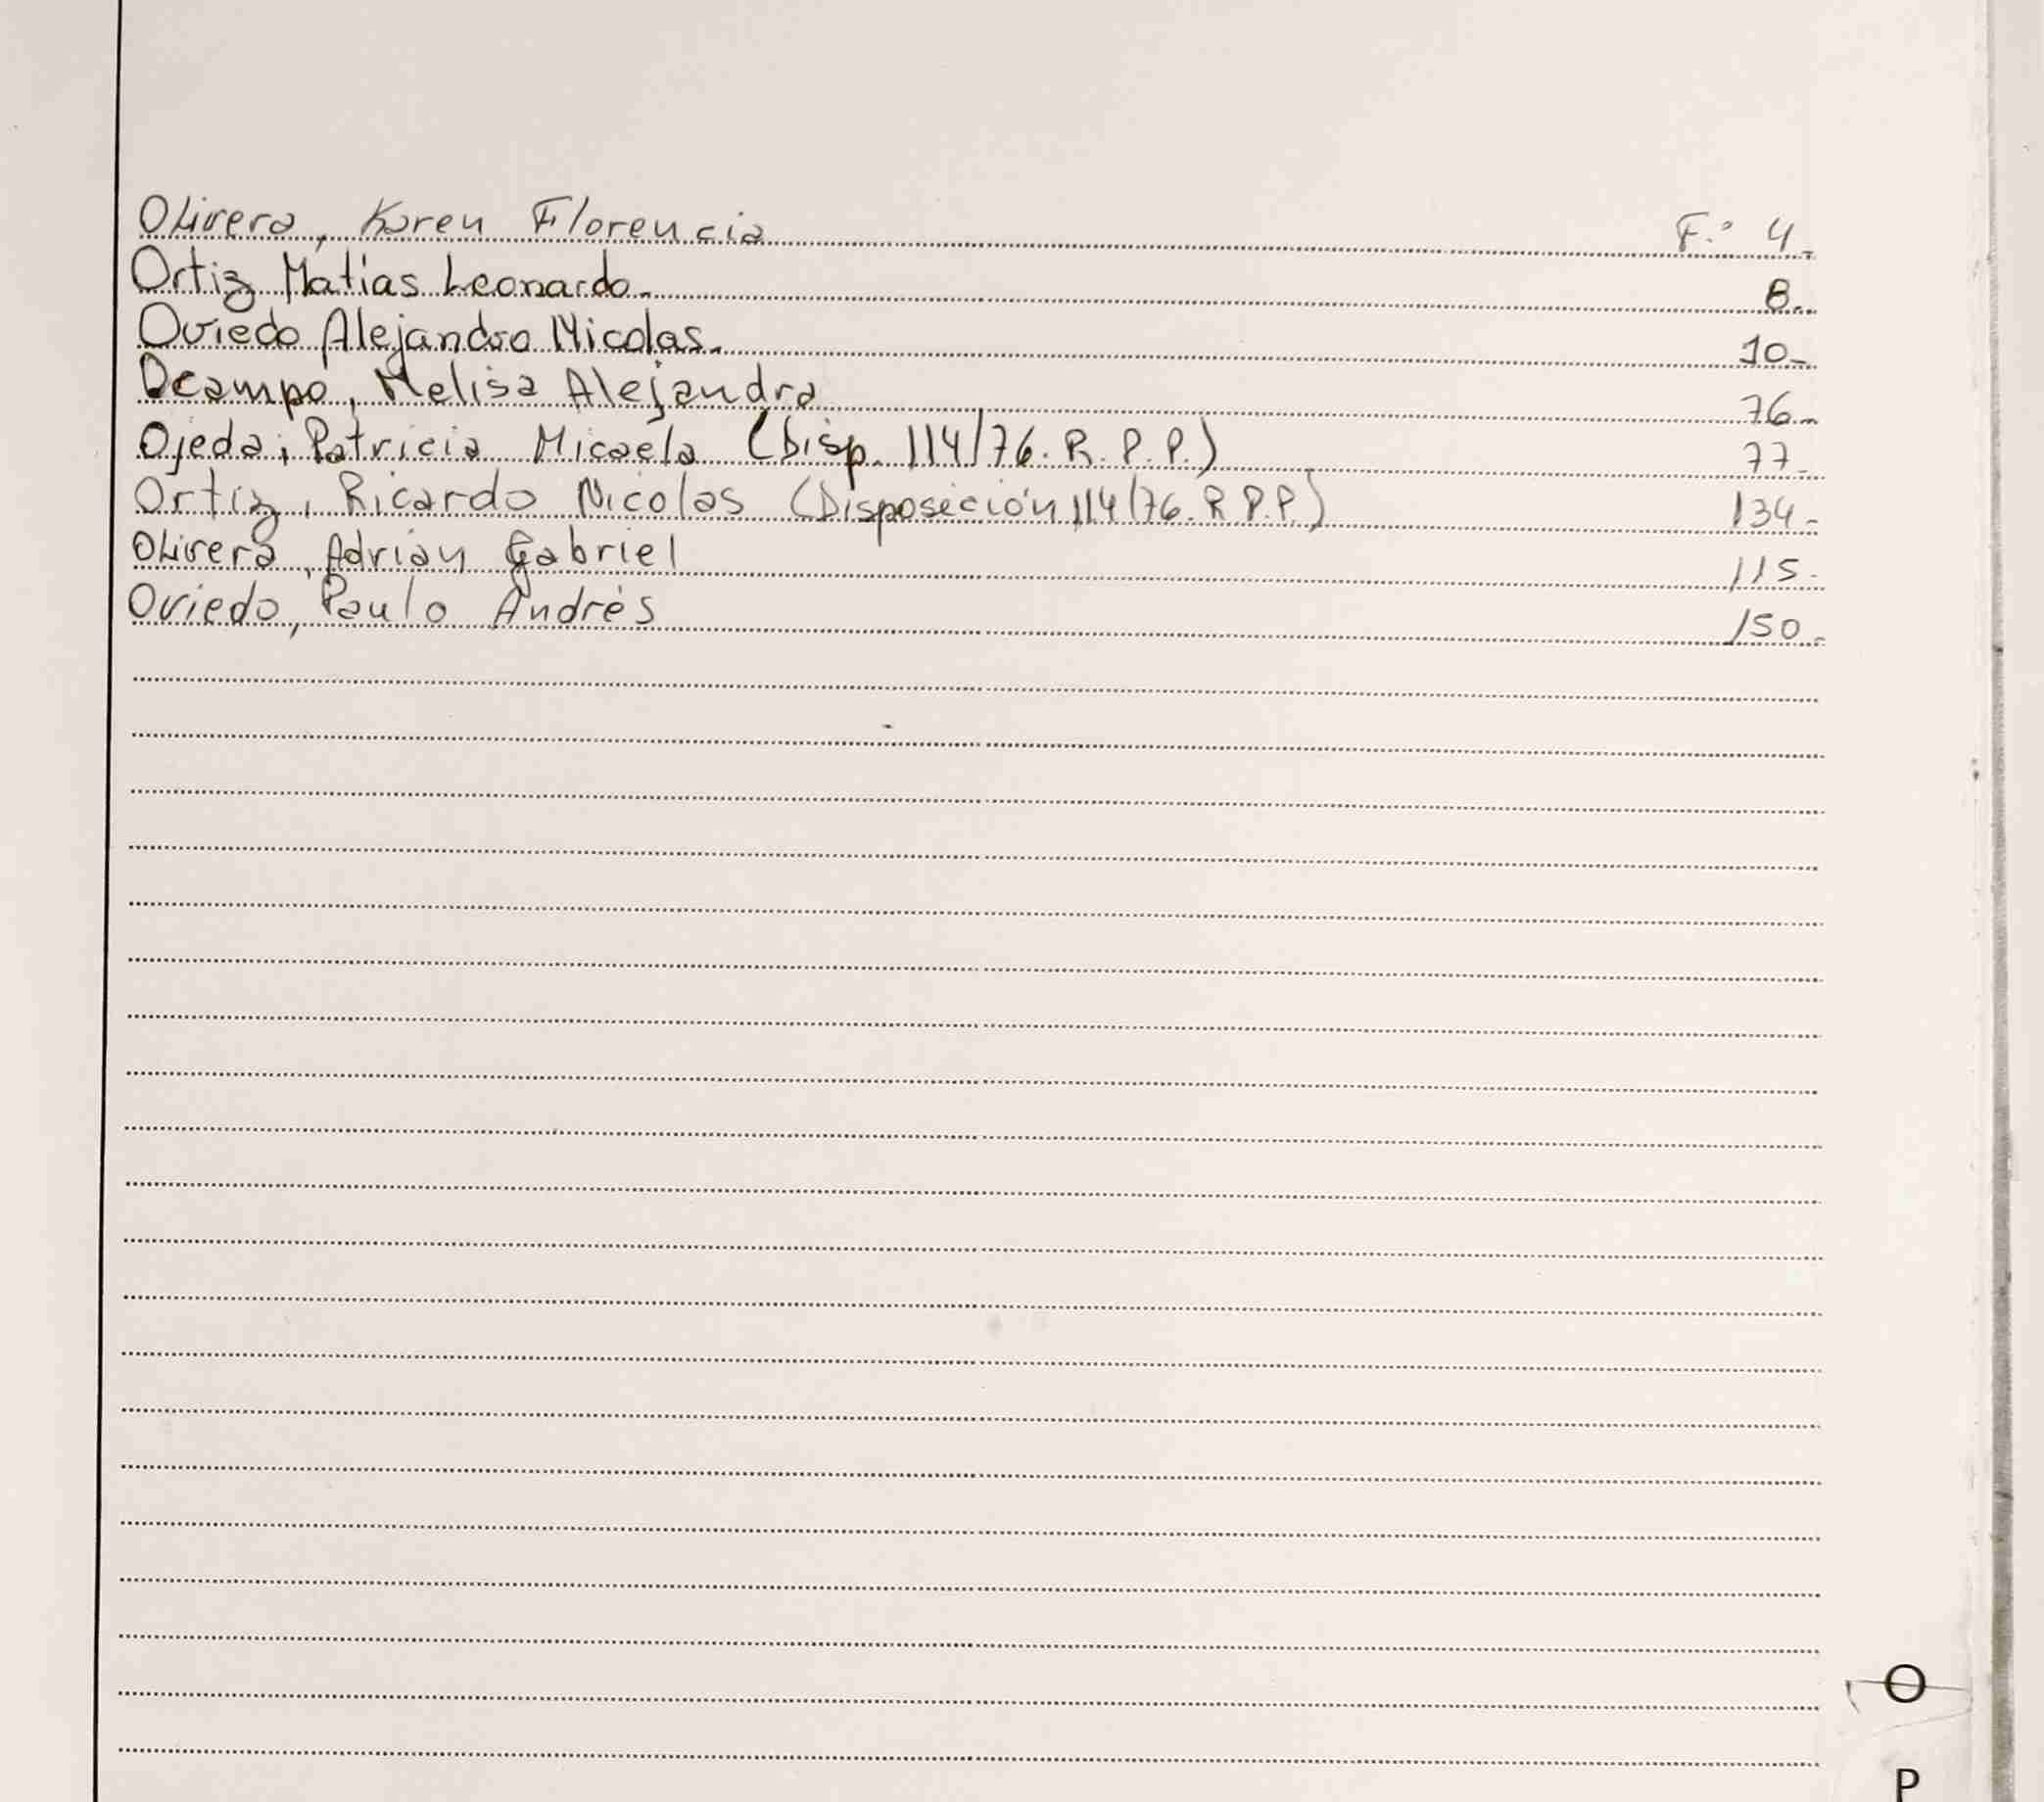 Olivera, Karen Florencia F.º 4.-
Ortiz Matias Leonardo.- 8.-
Oviedo Alejandro Nicolas.- 10.-
Ocampo, Melisa Alejandra 76.-
Ojeda, Patricia Micaela (Disp. 114/76. R. P. P.) 77.-
Ortiz, Ricardo Nicolas (Disposición 114/76. R.P.P.) 134.-
Olivera, Adrian Gabriel 115.-
Oviedo, Paulo Andrés 150.-
O
P